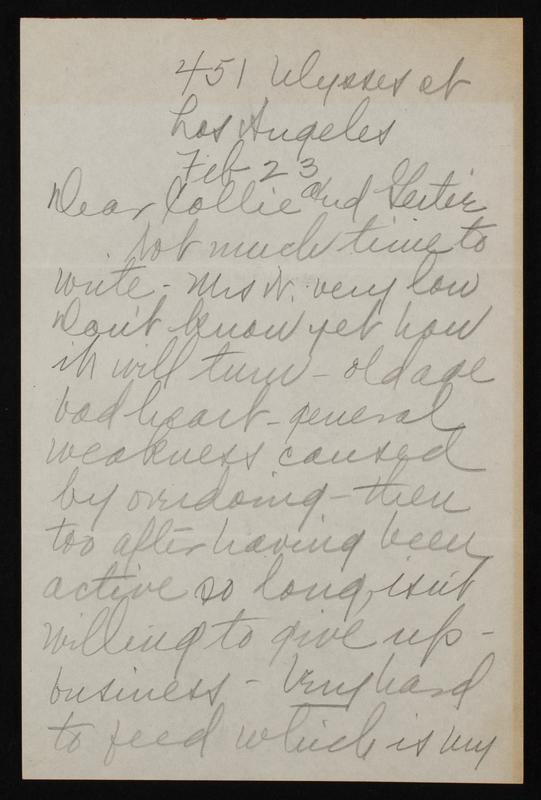 451 Ulysses st
Los Angeles
Feb 23
Dear Collie and
Not much time to
write - Mrs N. very low
Don't know yet how
it will turn - old age
bad heart - general
weakness caused
by overdoing - then
too after having been
active so long, isn't
willing to give up -
business - Very hard
to feed which is my